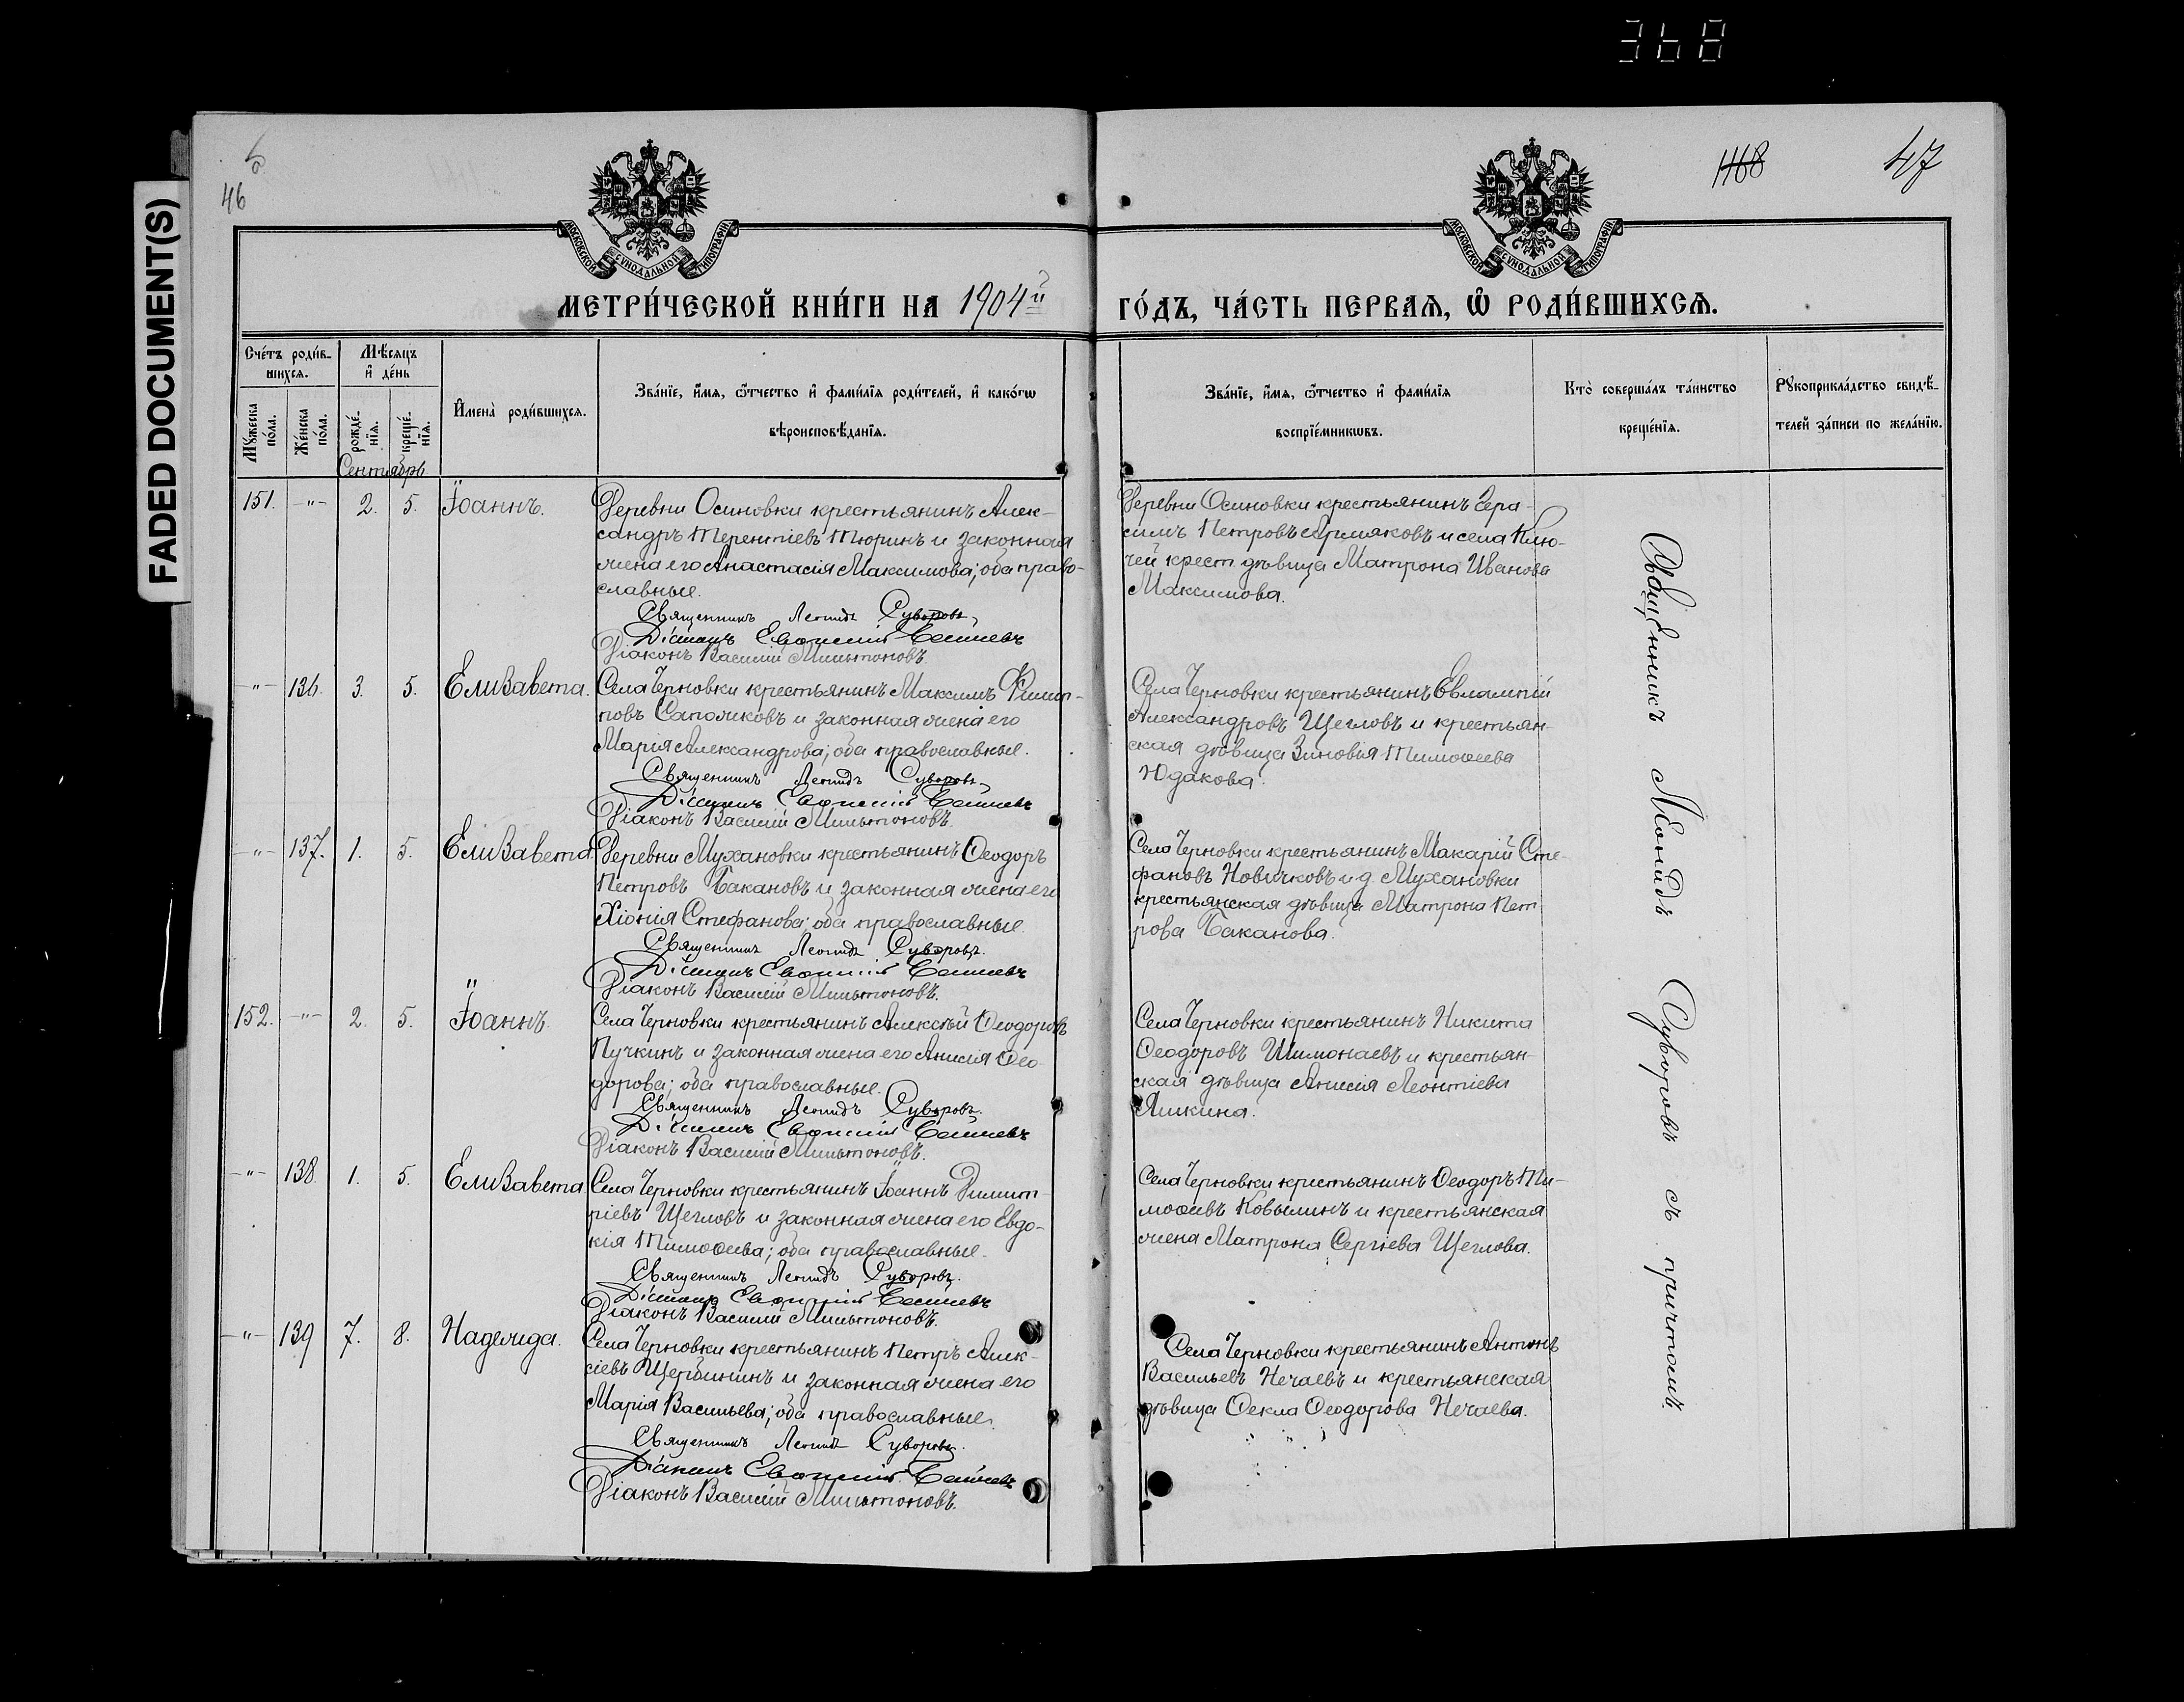 368
FADED DOCUMENT(S)
46
1168
47
МОСКОВСКОЙ СѴНОДАЛЬНОЙ ТИПОГРАФІИ
МОСКОВСКОЙ СѴНОДАЛЬНОЙ ТИПОГРАФІИ
МЕТРИ́ЧЕСКОЙ КНИ́ГИ НА 1904й ГО́ДЪ, ЧА́СТЬ ПЕРВАѦ, Ѡ РОДИ́ВШИХСѦ.
Сче́тъ роди́в-
шихсѧ.
Мꙋжеска
по́ла.
Же́нска
по́ла.
Мѣ́сѧцъ
и҆ де́нь
рожде́-
нїѧ.
креще́-
нїѧ.
И҆мена̀ роди́вшихсѧ.
Зва́нїе, и҆́мѧ, ѻ҆́тчество и҆ фами́лїѧ роди́телей, и҆ како́гѡ
вѣроисповѣ́данїѧ.
Зва́нїе, и҆́мѧ, ѻ҆́тчество и҆ фами́лїѧ
воспрїе́мникѡвъ.
Кто̀ соверша́лъ та́инство
креще́нїѧ.
Рꙋкоприкла́дство свидѣ́-
телей за́писи по жела́нїю.
Сентябрь
151. -"- 2. 5. Іоаннъ.
Деревни Осиновки крестьянинъ Алек-
сандръ Терентіевъ Тюринъ и законная
жена его Анастасія Максимова; оба право-
славные.
Священникъ Леонидъ Суворовъ
Діаконъ Василій Мильтоновъ.
Деревни Осиновки крестьянинъ Гера-
симъ Петровъ Армяковъ и села Клю-
чей крест. дѣвица Матрона Иванова
Максимова.
-"- 136. 3. 5. Елизавета.
Села Черновки крестьянинъ Максимъ Филип-
повъ Сапожковъ и законная жена его
Марія Александрова; оба православные.
Священникъ Леонидъ Суворовъ
Діаконъ Василій Мильтоновъ.
Села Черновки крестьянинъ Евлампій
Александровъ Щегловъ и крестьян-
ская дѣвица Зиновія Тимоѳеева
Юдакова.
-"- 137. 1. 5. Елизавета.
Деревни Мухановки крестьянинъ Ѳеодоръ
Петровъ Бакановъ и законная жена его
Хіонія Стефанова; оба православные.
Священникъ Леонидъ Суворовъ.
Діаконъ Василій Мильтоновъ.
Села Черновки крестьянинъ Макарій Сте-
фановъ Новичковъ и д. Мухановки
крестьянская дѣвица Матрона Пет
рова Баканова.
152. -"- 2. 5. Іоаннъ.
Села Черновки крестьянинъ Алексѣй Ѳеодоровъ
Пучкинъ и законная жена его Анисія Ѳео-
дорова; оба православные.
Священникъ Леонидъ Суворовъ.
Діаконъ Василій Мильтоновъ.
Села Черновки крестьянинъ Никита
Ѳеодоровъ Шимонаевъ и крестьян-
ская дѣвица Анисія Леонтіева
Яшкина.
-"- 138. 1. 5. Елизавета
Села Черновки крестьянинъ Іоаннъ Димит-
ріевъ Щегловъ и законная жена его Евдо-
кія Тимоѳеева; оба православные.
Священникъ Леонидъ Суворовъ.
Діаконъ Василій Мильтоновъ.
Села Черновки крестьянинъ Ѳеодоръ Ти-
моѳеевъ Ковылинъ и крестьянская
жена Матрона Сергіева Щеглова.
-"- 139 7. 8. Надежда.
Села Черновки крестьянинъ Петръ Алек-
сіевъ Щербининъ и законная жена его
Марія Васильева; оба православные.
Священникъ Леонидъ Суворовъ.
Діаконъ Василій Мильтоновъ.
Села Черновки крестьянинъ Антонъ
Васильевъ Нечаевъ и крестьянская
дѣвица Ѳекла Ѳеодорова Нечаева.
Священникъ Леонидъ Суворовъ съ причтомъ.